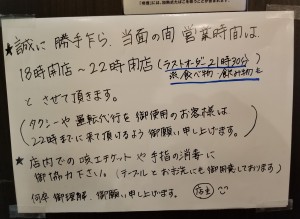 ★誠に 勝手乍ら、当面の間 営業時間は
18時開店〜22時閉店(ラストオーダー21時30分)
※食べ物 飲み物も
と させて頂きます。
(タクシーや 運転代行を 御使用のお客様は
22時までに来て頂けるよう 御願い申し上げます。)
★店内での 咳エチケットや 手指の消毒に
御協力下さい。(テーブルと お手洗にも 御用意しております)
何卒 御理解、御願い申し上げます。 店主